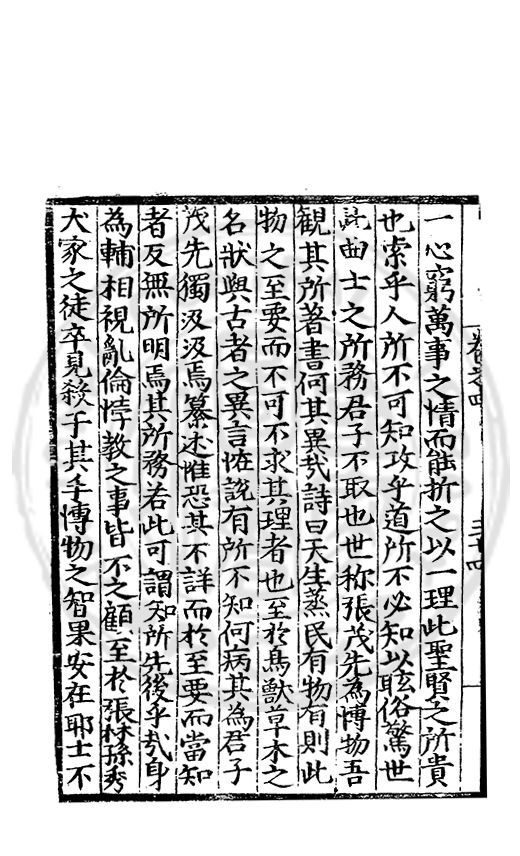 卷之四 三十四
一心窮萬事之情而能折之以一理此聖賢之所貴
也索乎人所不可知攻乎道所不必知以眩俗驚世
此曲士之所務君子不取也世称張茂先為博物吾
觀其所著書何其異哉詩曰天生蒸民有物有則此
物之至要而不可不求其理者也至於鳥獸草木之
名狀與古者之異言恠說有所不知何病其為君子
茂先獨汲汲焉纂述惟恐其不詳而於至要而當知
者反無所明焉其所務若此可謂知所先後乎哉身
為輔相視亂倫悖教之事皆不之顧至於張林孫秀
犬家之徒卒見殺于其手博物之智果安在耶士不